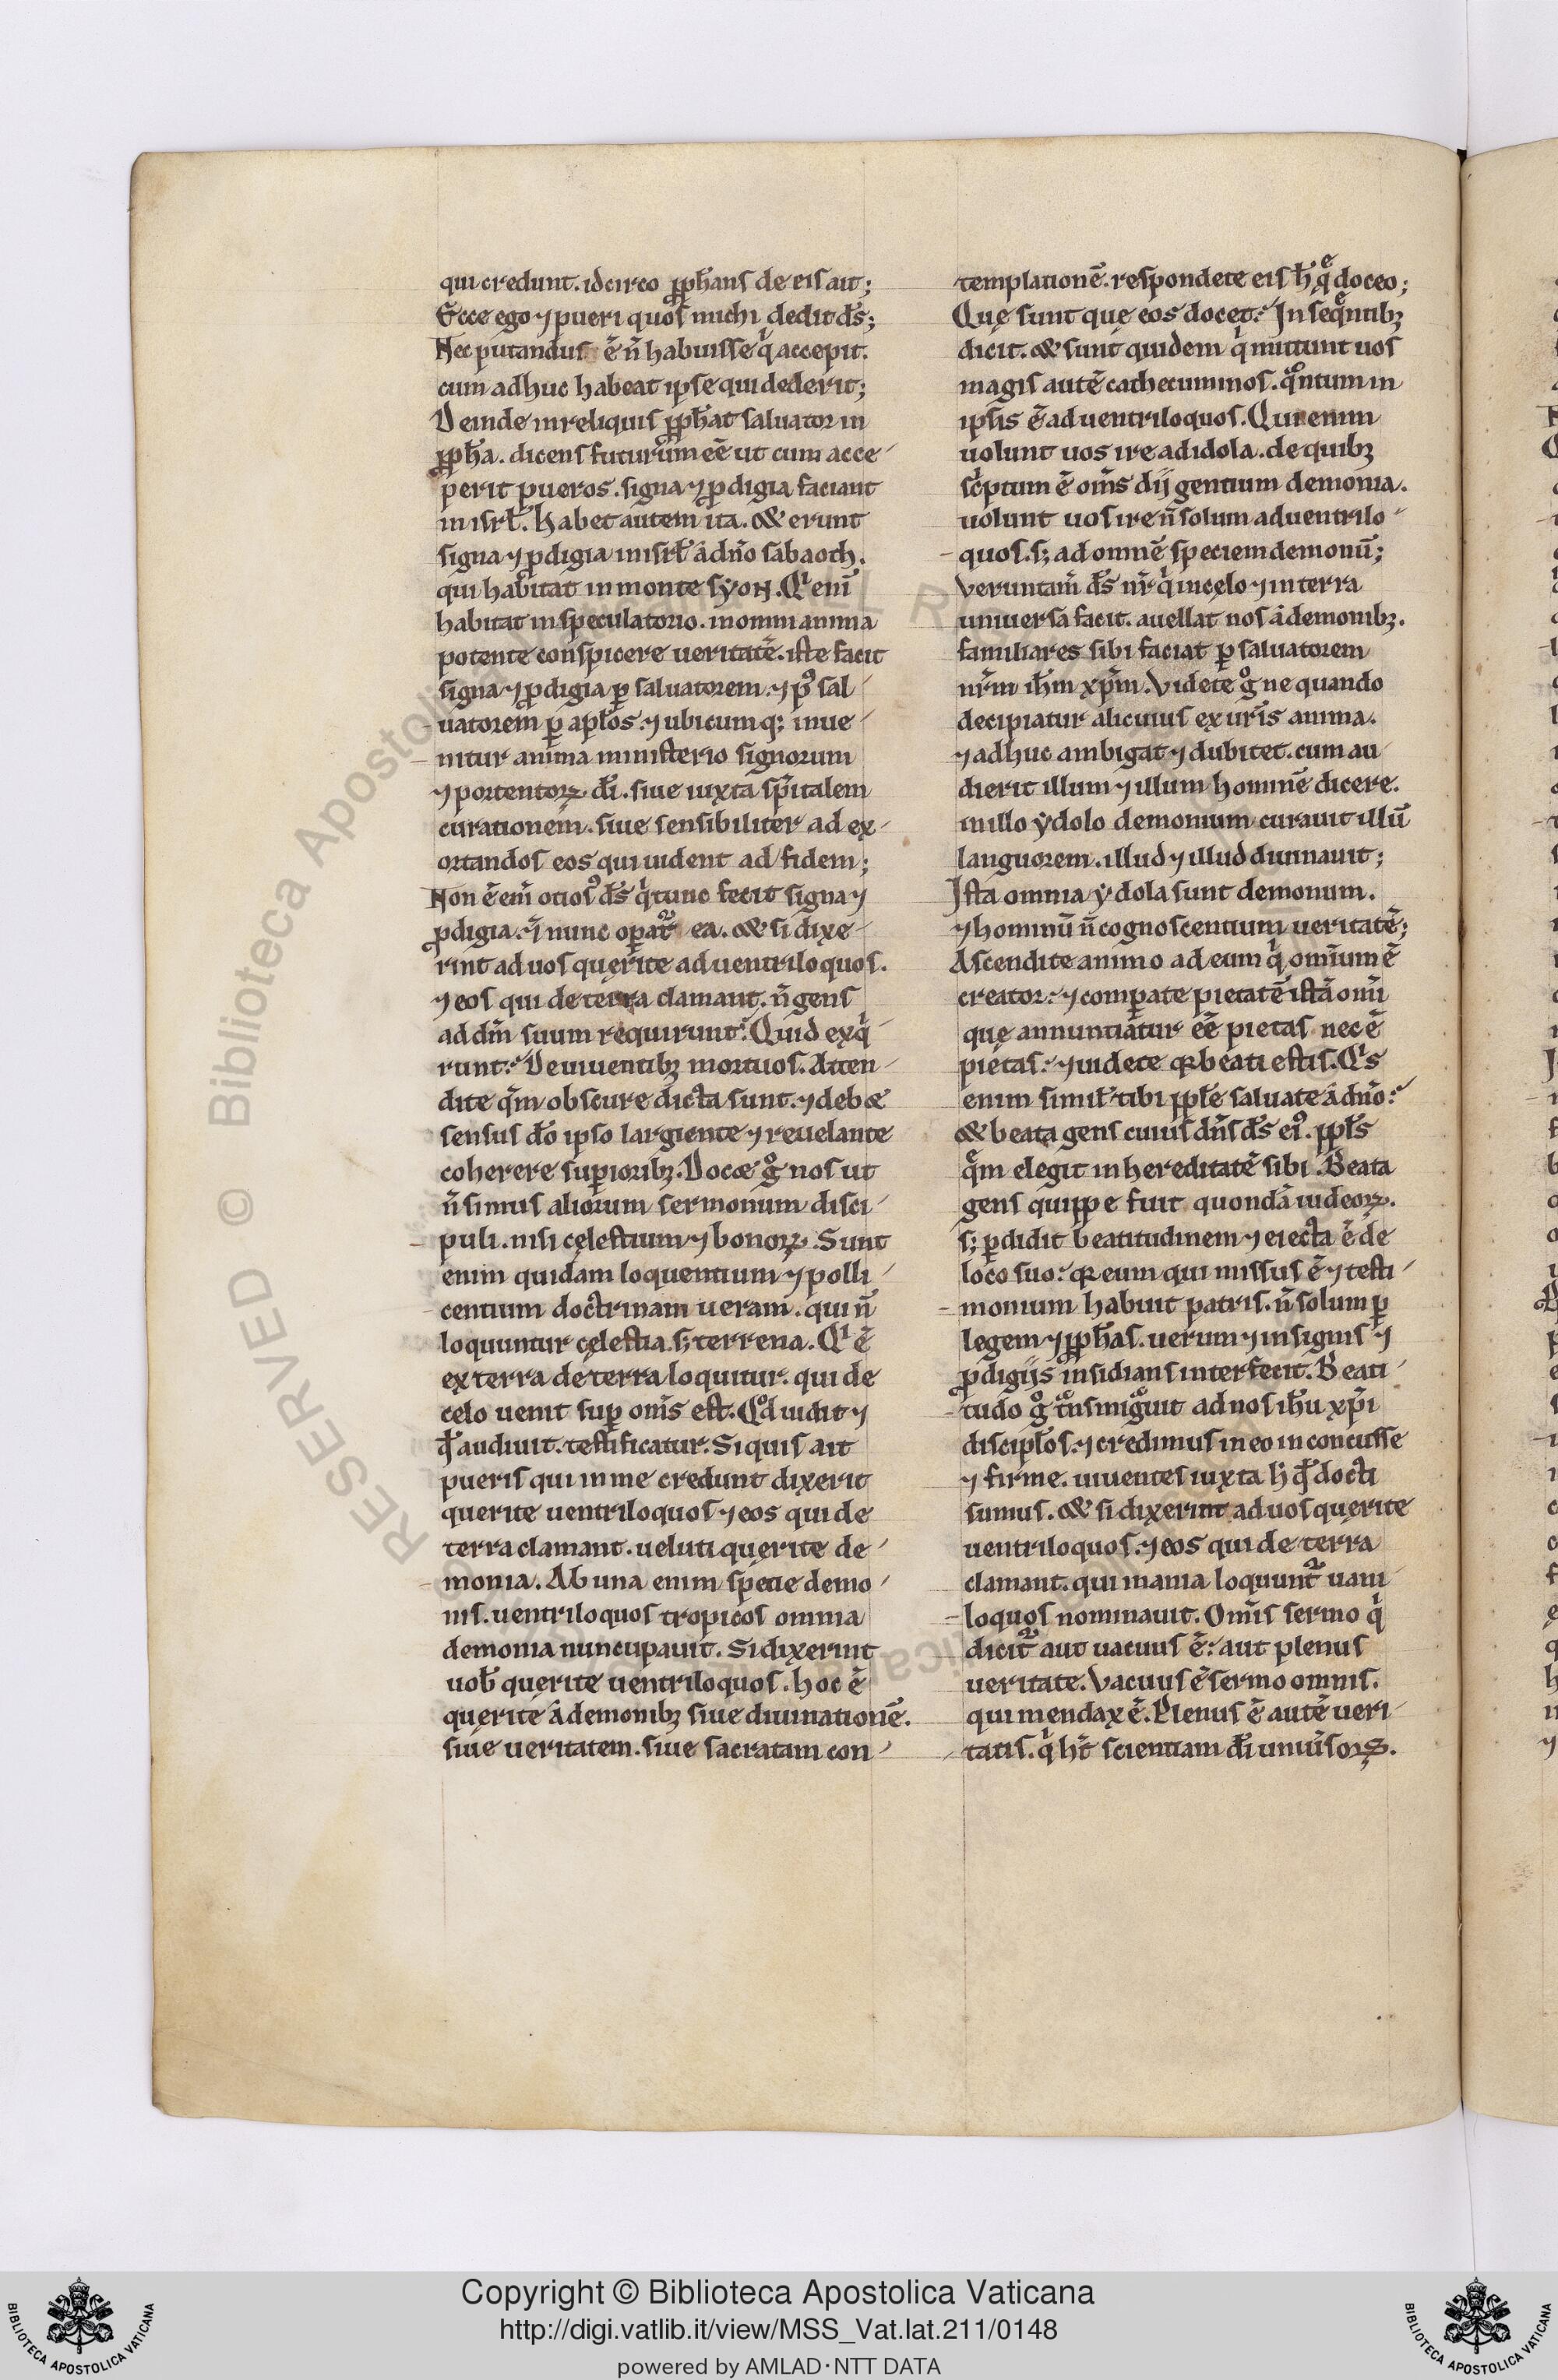 qui credunt. idcirco ꝓph̄ans de eis ait;
Ecce ego ⁊ pueri quos michi dedit d̄s;
Nec putandus ē n̄ habuisse qͥ accepit.
cum adhuc habeat ipse qui dederit;
Deinde in reliquis ꝓph̄at saluator in
ꝓph̄a. dicens futurum eē ut cum acce-
perit pueros. signa ⁊ ꝓdigia faciant
in isrł. habet autem ita. & erunt
signa ⁊ ꝓdigia in isrł a dn̄o sabaoth.
qui habitat in monte syon. Qͥ eni̅
habitat in speculatorio. in omni anima
potente conspicere ueritatē. iste facit
signa ⁊ ꝓdigia ꝑ saluatorem. ⁊ pꝰ sal-
uatorem ꝑ apłos. ⁊ ubicumq; inue-
nitur anima ministerio signorum
⁊ portentoꝝ dī. siue iuxta sp̄italem
curationem. siue sensibiliter ad ex-
ortandos eos qui uident ad fidem;
Non ē em̄ otiosꝰ d̄s qͥ tunc fecit signa ⁊
ꝓdigia. ⁊ nunc oꝑat᷑ ea. & si dixe-
rint ad uos querite ad uentriloquos.
⁊ eos qui de terra clamant. n̄ gens
ad dm̄ suum requirunt? Quid exqͥ
runt? De uiuentibꝫ mortuos. Atten-
dite qm̄ obscure dicta sunt. ⁊ debet
sensus do̅ ipso largiente ⁊ reuelante
coherere suꝑioribꝫ. Docet gͦ nos ut
n̄ simus aliorum sermonum disci-
puli. nisi cęlestium ⁊ bonoꝝ. Sunt
enim quidam loquentium ⁊ polli-
centium doctrinam ueram. qui n̄
loquuntur cęlestia. s; terrena. Qͥ ē
ex terra de terra loquitur. qui de
celo uenit suꝑ om̄s est. Qd̓ uidit ⁊
qd̓ audiuit. testificatur. Si quis ait
pueris qui in me credunt dixerit
querite uentriloquos ⁊ eos qui de
terra clamant. ueluti querite de-
monia. Ab una enim specie demo-
nis. uentriloquos tropicos omnia
demonia nuncupauit. Si dixerint
uob̄ querite uentriloquos. hoc ē
querite a demonibꝫ siue diuinationē.
siue ueritatem. siue sacratam con-
templationē. respondete eis h̄ qͤ doceo;
Quę sunt quę eos docet? In seqͤntibꝫ
dicit. & sunt quidem qͥ mittunt uos
magis autē cathecuminos. qͣntum in
ipsis ē ad uentriloquos. Qui enim
uolunt uos ire ad idola. de quibꝫ
scͥptum ē om̄s dij gentium demonia.
uolunt uos ire n̄ solum ad uentrilo-
quos. s; ad omnē speciem demonū;
Veruntam̄ d̄s nr̄ qͥ in celo ⁊ in terra
uniuersa facit. auellat nos a demonibꝫ.
familiares sibi faciat ꝑ saluatorem
nr̄m ih̄m xp̄m. Videte gͦ ne quando
decipiatur alicuius ex ur̄is anima.
⁊ adhuc ambigat ⁊ dubitet. cum au-
dierit illum ⁊ illum hominē dicere.
in illo ydolo demonium curauit illū
languorem. illud ⁊ illud diuinauit;
Ista omnia ydola sunt demonum.
⁊ hominū n̄ cognoscentium ueritatē;
Ascendite animo ad eum qͥ omnium ē
creator. ⁊ comꝑate pietatē istā om̄i
que annuntiatur eē pietas nec ē
pietas. ⁊ uidete qꝛ beati estis. Qͥs
enim simił tibi ppłe saluate a dn̄o?
& beata gens cuius dn̄s d̄s eiꝰ. ppłs
qͣm elegit in hereditatē sibi. Beata
gens quippe fuit quondā iudeoꝝ.
s; ꝑdidit beatitudinem ⁊ eiecta ē de
loco suo. qꝛ eum qui missus ē ⁊ testi-
monium habuit patris. n̄ solum ꝑ
legem ⁊ ꝓph̄as. uerum ⁊ in signis ⁊
ꝓdigijs insidians interfecit. Beati-
tudo gͦ tͣnsmigͣuit ad nos ih̄u xp̄i
discipłos. ⁊ credimus in eo inconcusse
⁊ firme. uiuentes iuxta h̄ qd̓ docti
sumus. & si dixerint ad uos querite
uentriloquos. ⁊ eos qui de terra
clamant. qui mania loquunt᷑ uani-
loquos nominauit. Om̄is sermo qͥ
dicit᷑ aut uacuus ē. aut plenus
ueritate. Vacuus ē sermo omnis.
qui mendax ē. Plenus ē autē ueri-
tatis. qͥ ht̄ scientiam dī uniūsoꝝ.
Copyright © Biblioteca Apostolica Vaticana
http://digi.vatlib.it/view/MSS_Vat.lat.211/0148
powered by AMLAD·NTT DATA